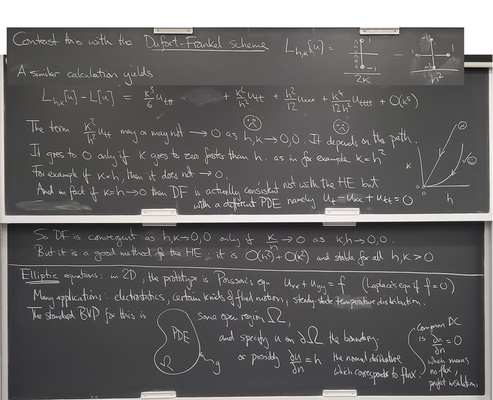 Contrast this with the Dufort-Frankel scheme L_{h,k}[u] =
1
-1
2k
-1
1
h²
A similar calculation yields
L_{h,k}[u] - L[u] = k²/6 u_ttt + k²/h² u_tt + h²/12 u_xxxx + k⁴/12h² u_tttt + O(k⁴)
The term k²/h² u_tt may or may not → 0 as h,k → 0,0. It depends on the path.
It goes to 0 only if k goes to zero faster than h. as in for example k = h²
For example if k = h, then it does not → 0.
And in fact if k = h → 0 then DF is actually consistent not with the HE but
with a different PDE namely u_t - u_xx + u_tt = 0
k
h
So DF is convergent as h,k → 0,0 only if k/h → 0 as k,h → 0,0.
But it is a good method for the HE: it is O(h²) + O(k²) and stable for all h,k > 0
Elliptic equations: in 2D, the prototype is Poisson's eqn u_xx + u_yy = f (Laplace's eqn if f = 0)
Many applications: electrostatics, certain kinds of fluid motion, steady state temperature distribution.
The standard BVP for this is some open region Ω,
PDE
Ω
and specify u on ∂Ω the boundary
or possibly ∂u/∂n = h the normal derivative
which corresponds to flux.
Common BC
is ∂u/∂n = 0
which means
no flux,
perfect insulation